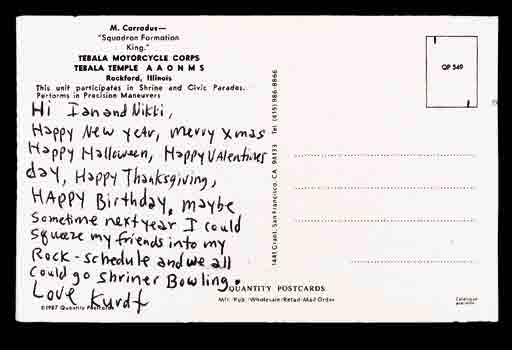 M. Corrodus—
"Squadron Formation
King."
TEBALA MOTORCYCLE CORPS
TEBALA TEMPLE A A O N M S
Rockford, Illinois
This unit participates in Shrine and Civic Parades.
Performs in Precision Maneuvers
Hi Ian and Nikki,
Happy New year, merry xmas
Happy Halloween, Happy Valentines
day, Happy Thanksgiving,
HAppy Birthday, maybe
Sometime next year I could
squeeze my friends into my
Rock-schedule and we all
could go shriner Bowling.
Love Kurdt
©1987 Quantity Postcards
1441 Grant, San Francisco, CA 94133 Tel (415) 986-8866
QP 549
QUANTITY POSTCARDS
Mfr. Pub. Wholesale-Retail-Mail Order
Catalogue